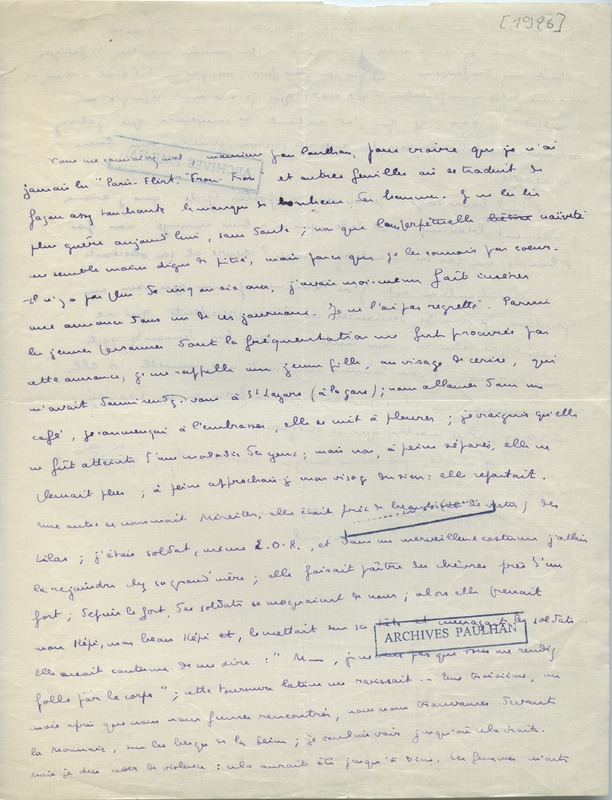 [1926]
Vous me connaissez mal monsieur Jean Paulhan, pour croire que je n'ai
jamais lu "Paris-Flirt", "Frou-Frou" et autres feuilles où se traduit de
façon assez touchante le manque de bonheur des hommes. Je ne les lis
plus guère aujourd'hui, sans doute ; non que leur perpétuelle naïveté
me semble moins digne de pitié, mais parce que je le connais par coeur.
Il n'y a pas plus de cinq ou six ans, j'avais moi-même fait insérer
une annonce dans un de ces journaux. Je ne l'ai pas regretté. Parmi
les jeunes personnes dont la fréquentation me fut procurée par
cette annonce, je me rappelle une jeune fille, au visage de cerise, qui
m'avait donné rendez-vous à St Lazare (à la gare) ; nous allâmes dans un
café, je commençai à l'embrasser, elle se mit à pleurer ; je craignis qu'elle
ne fût atteinte d'une maladie des yeux ; mais non, à peine séparés, elle ne
pleurait plus ; à peine approchais-je mon visage du sien : elle repartait.
Une autre se nommait Mireille, elle était près de des
Lilas ; j'étais soldat, même E.O.R., et dans un merveilleux costume j'allais
la rejoindre chez sa grand'mère ; elle faisait paître des chèvres près d'un
fort ; depuis le fort, des soldats se moquaient de nous ; alors elle prenait
mon képi, mon beau képi et, le mettait sur sa tête et menaçait les soldats.
ARCHIVES PAULHAN
Elle avait coutume de me dire : " je ne pas que vous me rendiez
folle par le corps" ; cette tournure latine me ravissait. Une troisième, un
mois après que nous nous fûmes rencontrés, nous nous trouvâmes devant
la Monnaie, sur les berges de la Seine ; je voulais voir jusqu'où cela irait.
Mais je dus user de violence : cela aurait été jusqu'à Dieu. Les femmes m'ont